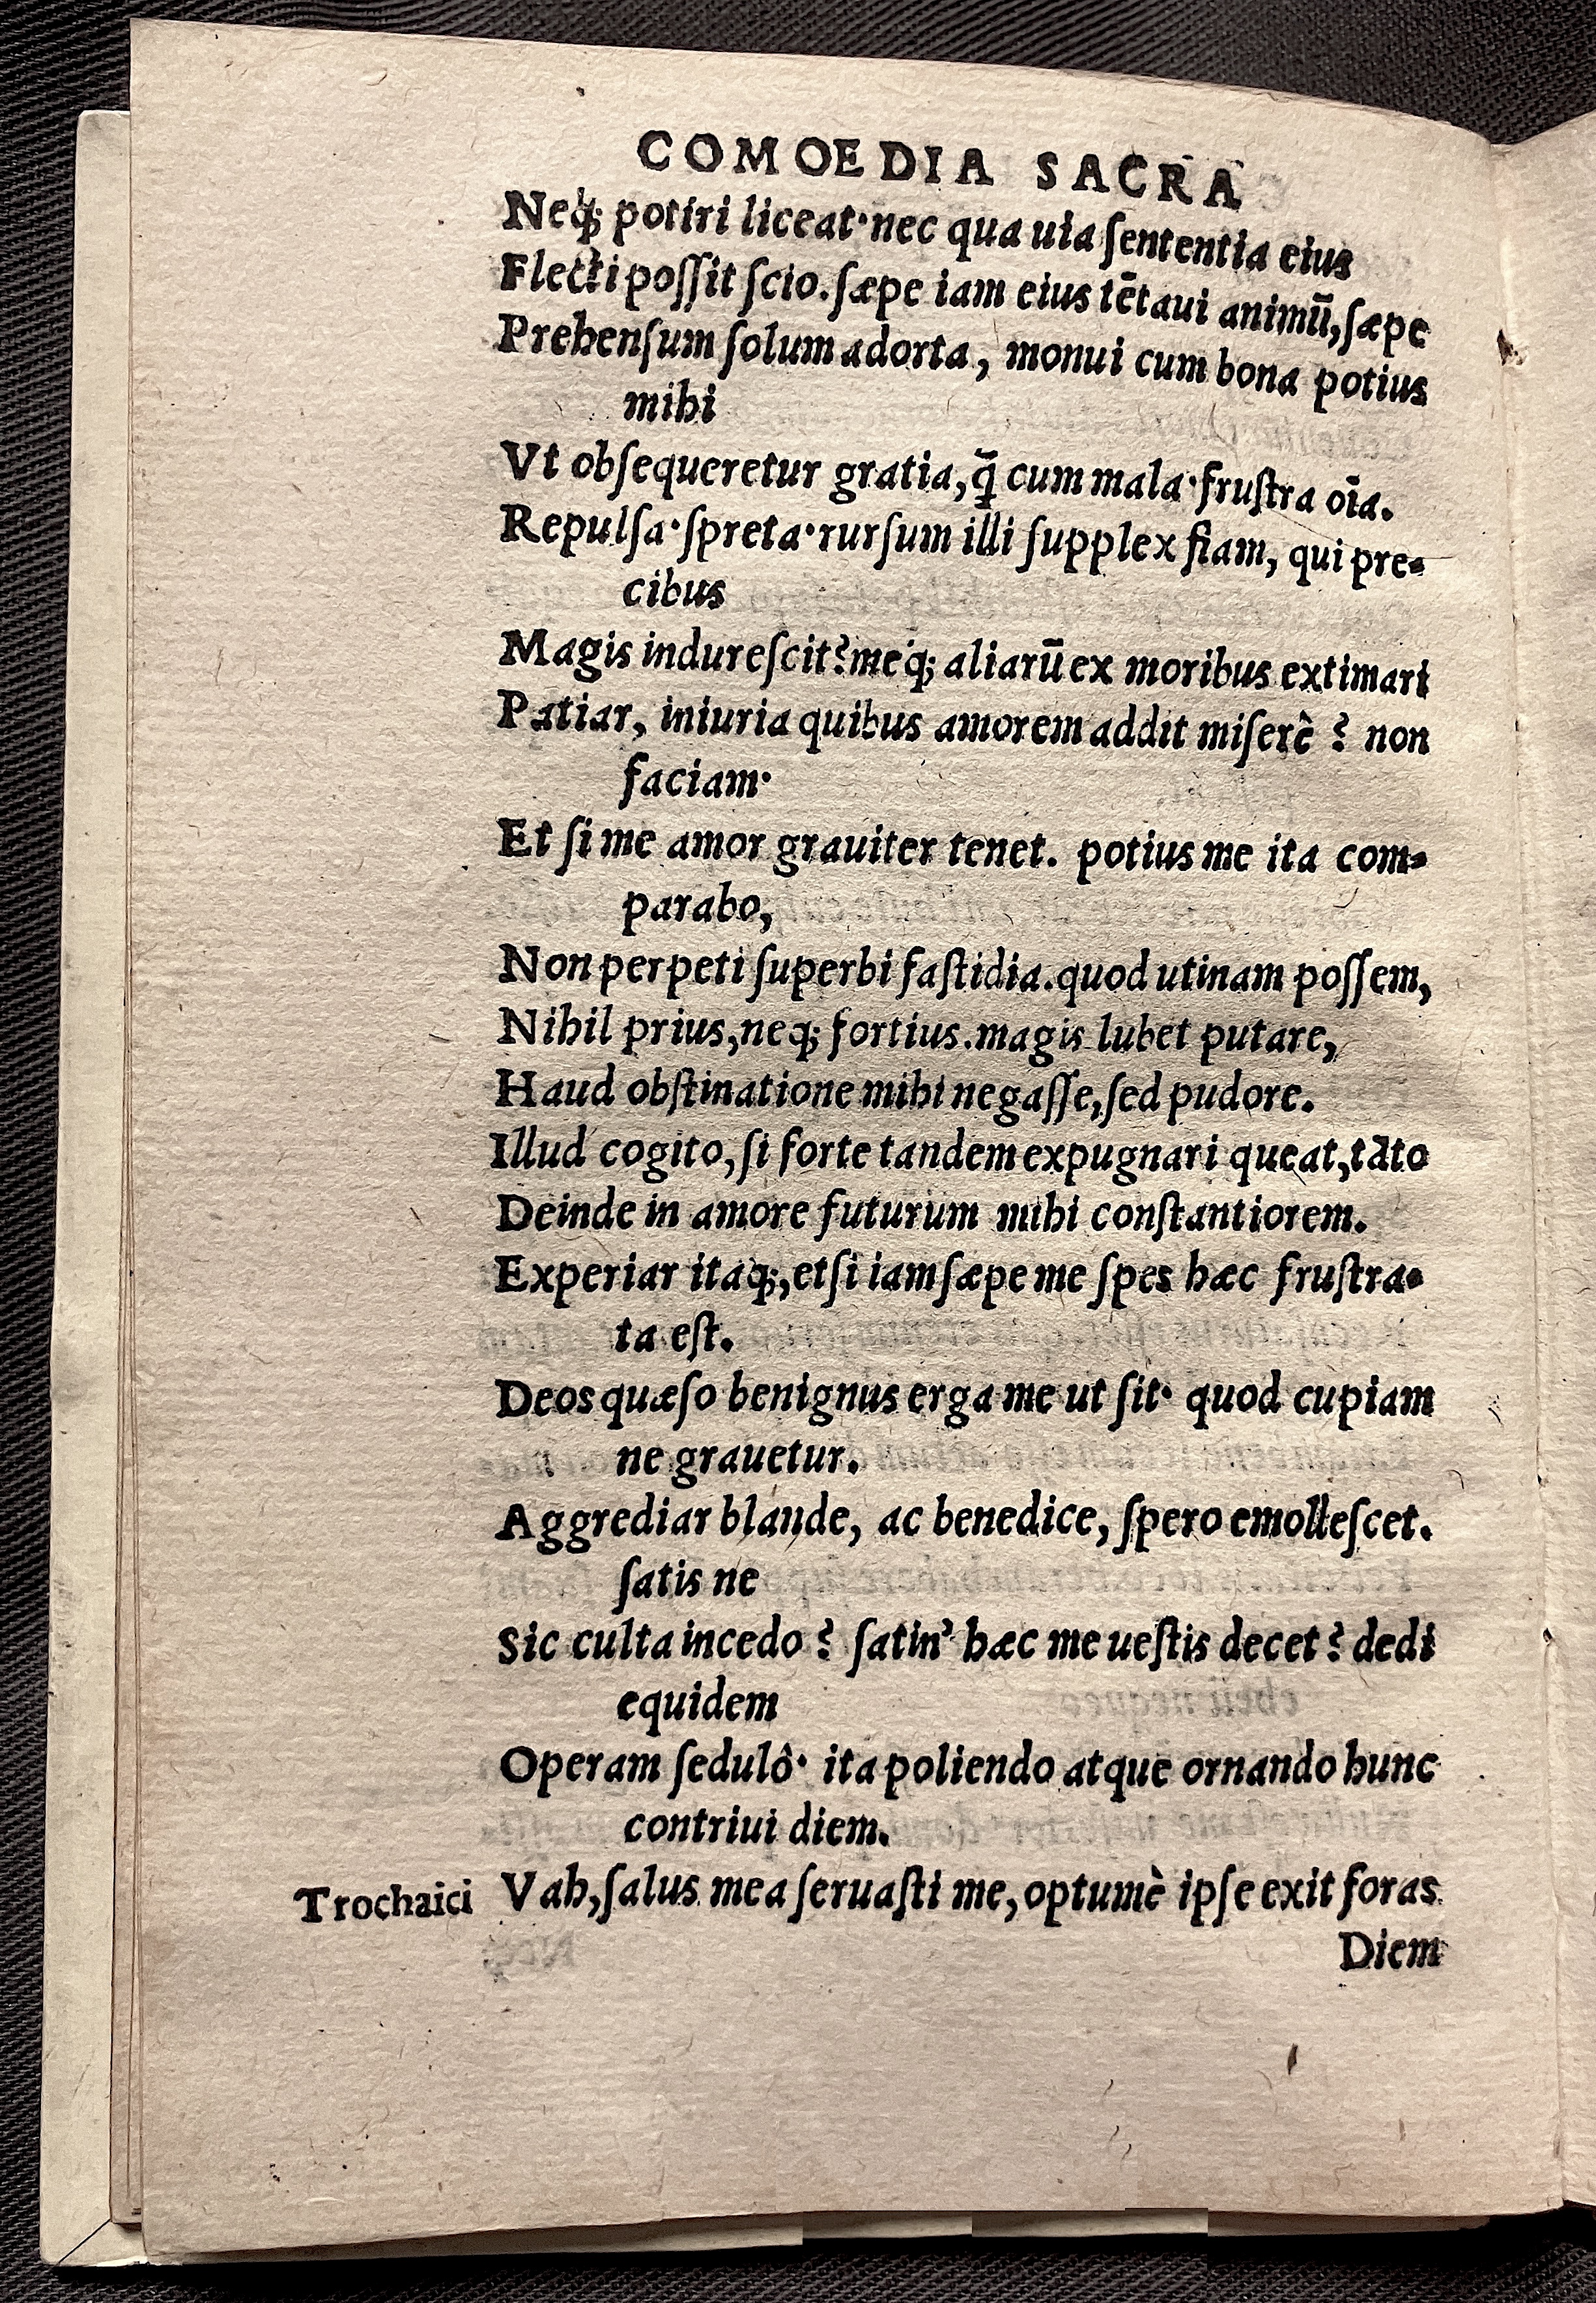 COMOEDIA SACRA
Neq; potiri liceat·nec qua uia ſententia eius
Flecti poſſit ſcio. ſæpe iam eius tẽtaui animũ, ſæpe
Prehenſum ſolum adorta, monui cum bona potius
mihi
Vt obſequeretur gratia, q̃ cum mala·fruſtra oĩa.
Repulſa·ſpreta·rurſum illi ſupplex fiam, qui pre-
cibus
Magis indureſcit? meq; aliarũ ex moribus extimari
Patiar, iniuria quibus amorem addit miſerê? non
faciam·
Et ſi me amor grauiter tenet. potius me ita com-
parabo,
Non perpeti ſuperbi faſtidia. quod utinam poſſem,
Nihil prius, neq; fortius. magis lubet putare,
Haud obſtinatione mihi negaſſe, ſed pudore.
Illud cogito, ſi forte tandem expugnari queat, tãto
Deinde in amore futurum mihi conſtantiorem.
Experiar itaq;, etſi iam ſæpe me ſpes hæc fruſtra-
ta eſt.
Deos quæſo benignus erga me ut ſit· quod cupiam
ne grauetur.
Aggrediar blande, ac benedice, ſpero emolleſcet.
ſatis ne
Sic culta incedo? ſatin' hæc me ueſtis decet? dedi
equidem
Operam ſedulô· ita poliendo atque ornando hunc
contriui diem.
Trochaici Vah, ſalus mea ſeruaſti me, optumè ipſe exit foras
Diem